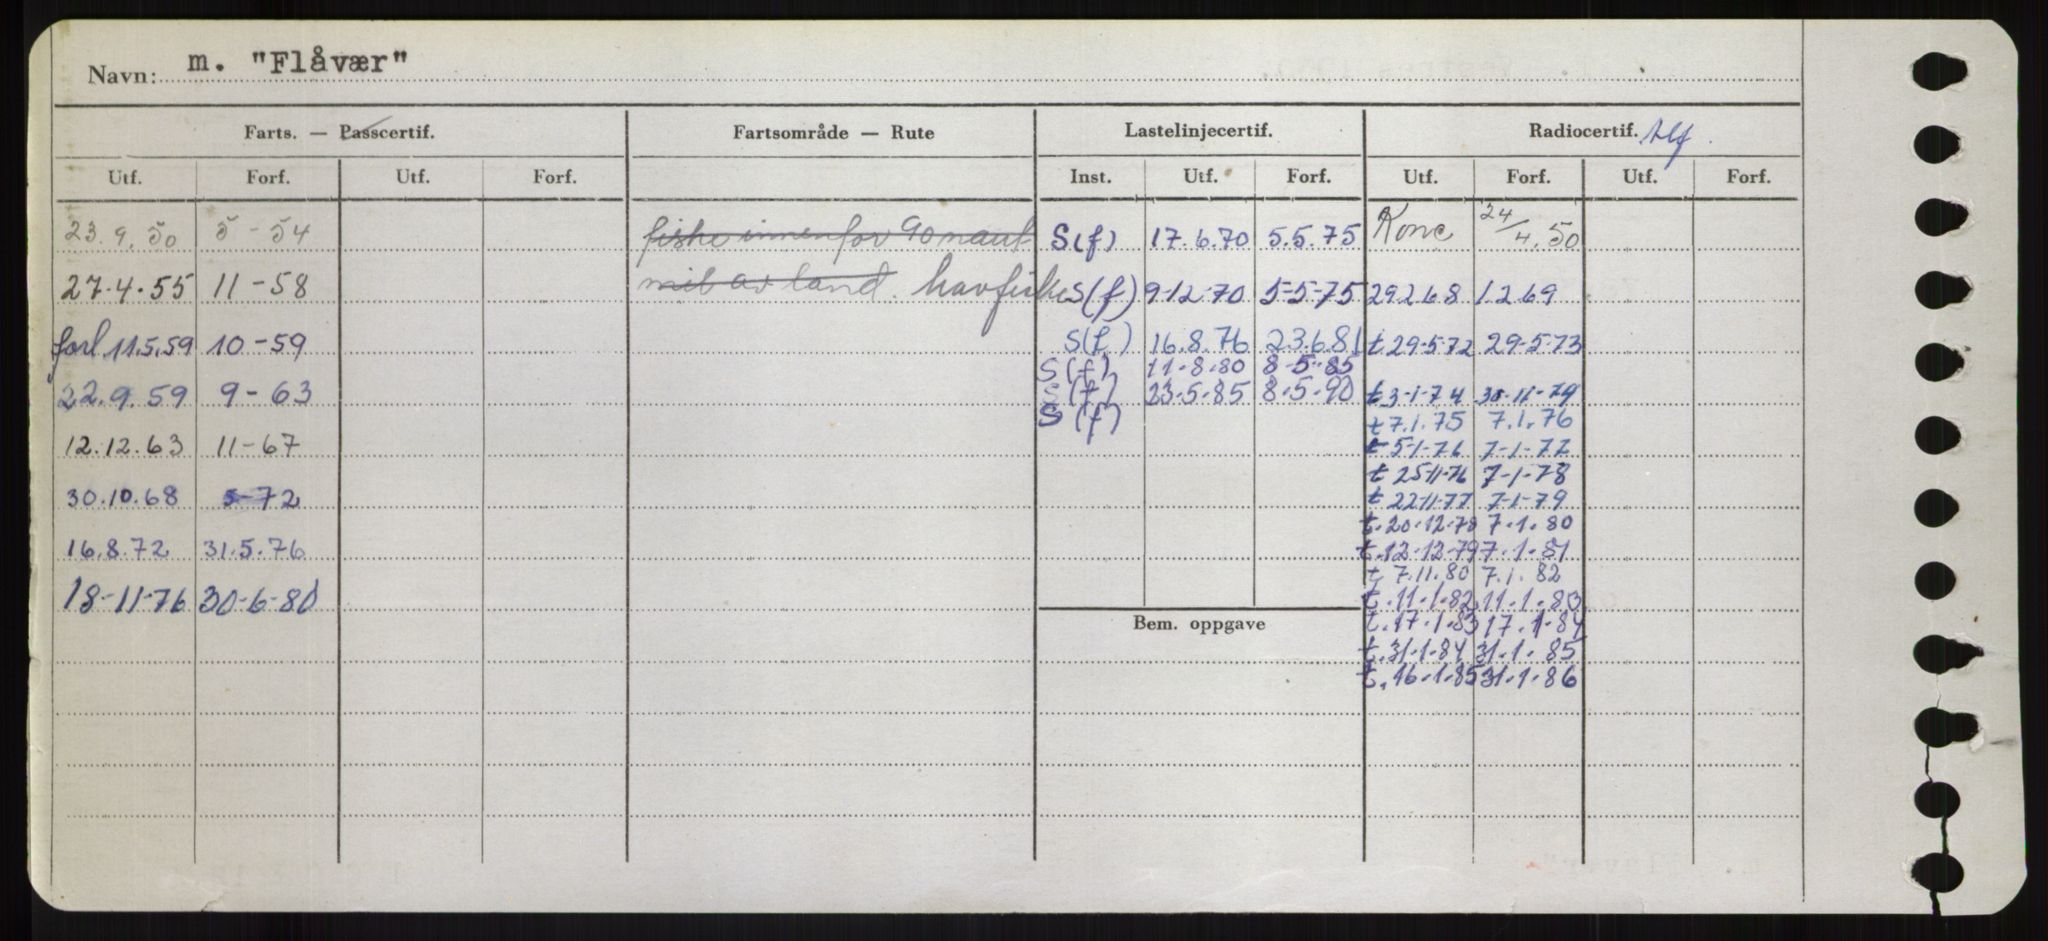 Navn: m. "Flåvær"
Farts. — Passcertif. Fartsområde — Rute Lastelinjecertif. Radiocertif. tlf.
Utf. Forf. Utf. Forf. Inst. Utf. Forf. Utf. Forf. Utf. Forf.
23.9.50 5-54 fiske innenfor 90 naut S(f) 17.6.70 5.5.75 Konc 24/4.50
27.4.55 11-58 mil av land. havfiske S(f) 9-12-70 5-5-75 29268 1269
forl 11.5.59 10-59 S(f) 16.8.76 23.6.81 t 29-5-72 29-5-73
S(f) 11.8.80 8-5-85
22.9.59 9-63 S(f) 23.5.85 8.5.90 t 3-1-74 30-11-79
S(f) t 7.1.75 7.1.76
12.12.63 11-67 t 5-1-76 7-1-77
t 25-11-76 7-1-78
30.10.68 5-72 t 22-11-77 7-1-79
t.20.12.78 7.1.80
16.8.72 31.5.76 t.12.12.79 7.1.81
t 7.11.80 7.1.82
18-11-76 30-6-80 t.11.1.82 11.1.83
Bem. oppgave t.17.1.83 17.1.84
t.31.1.84 31.1.85
t.16.1.85 31.1.86